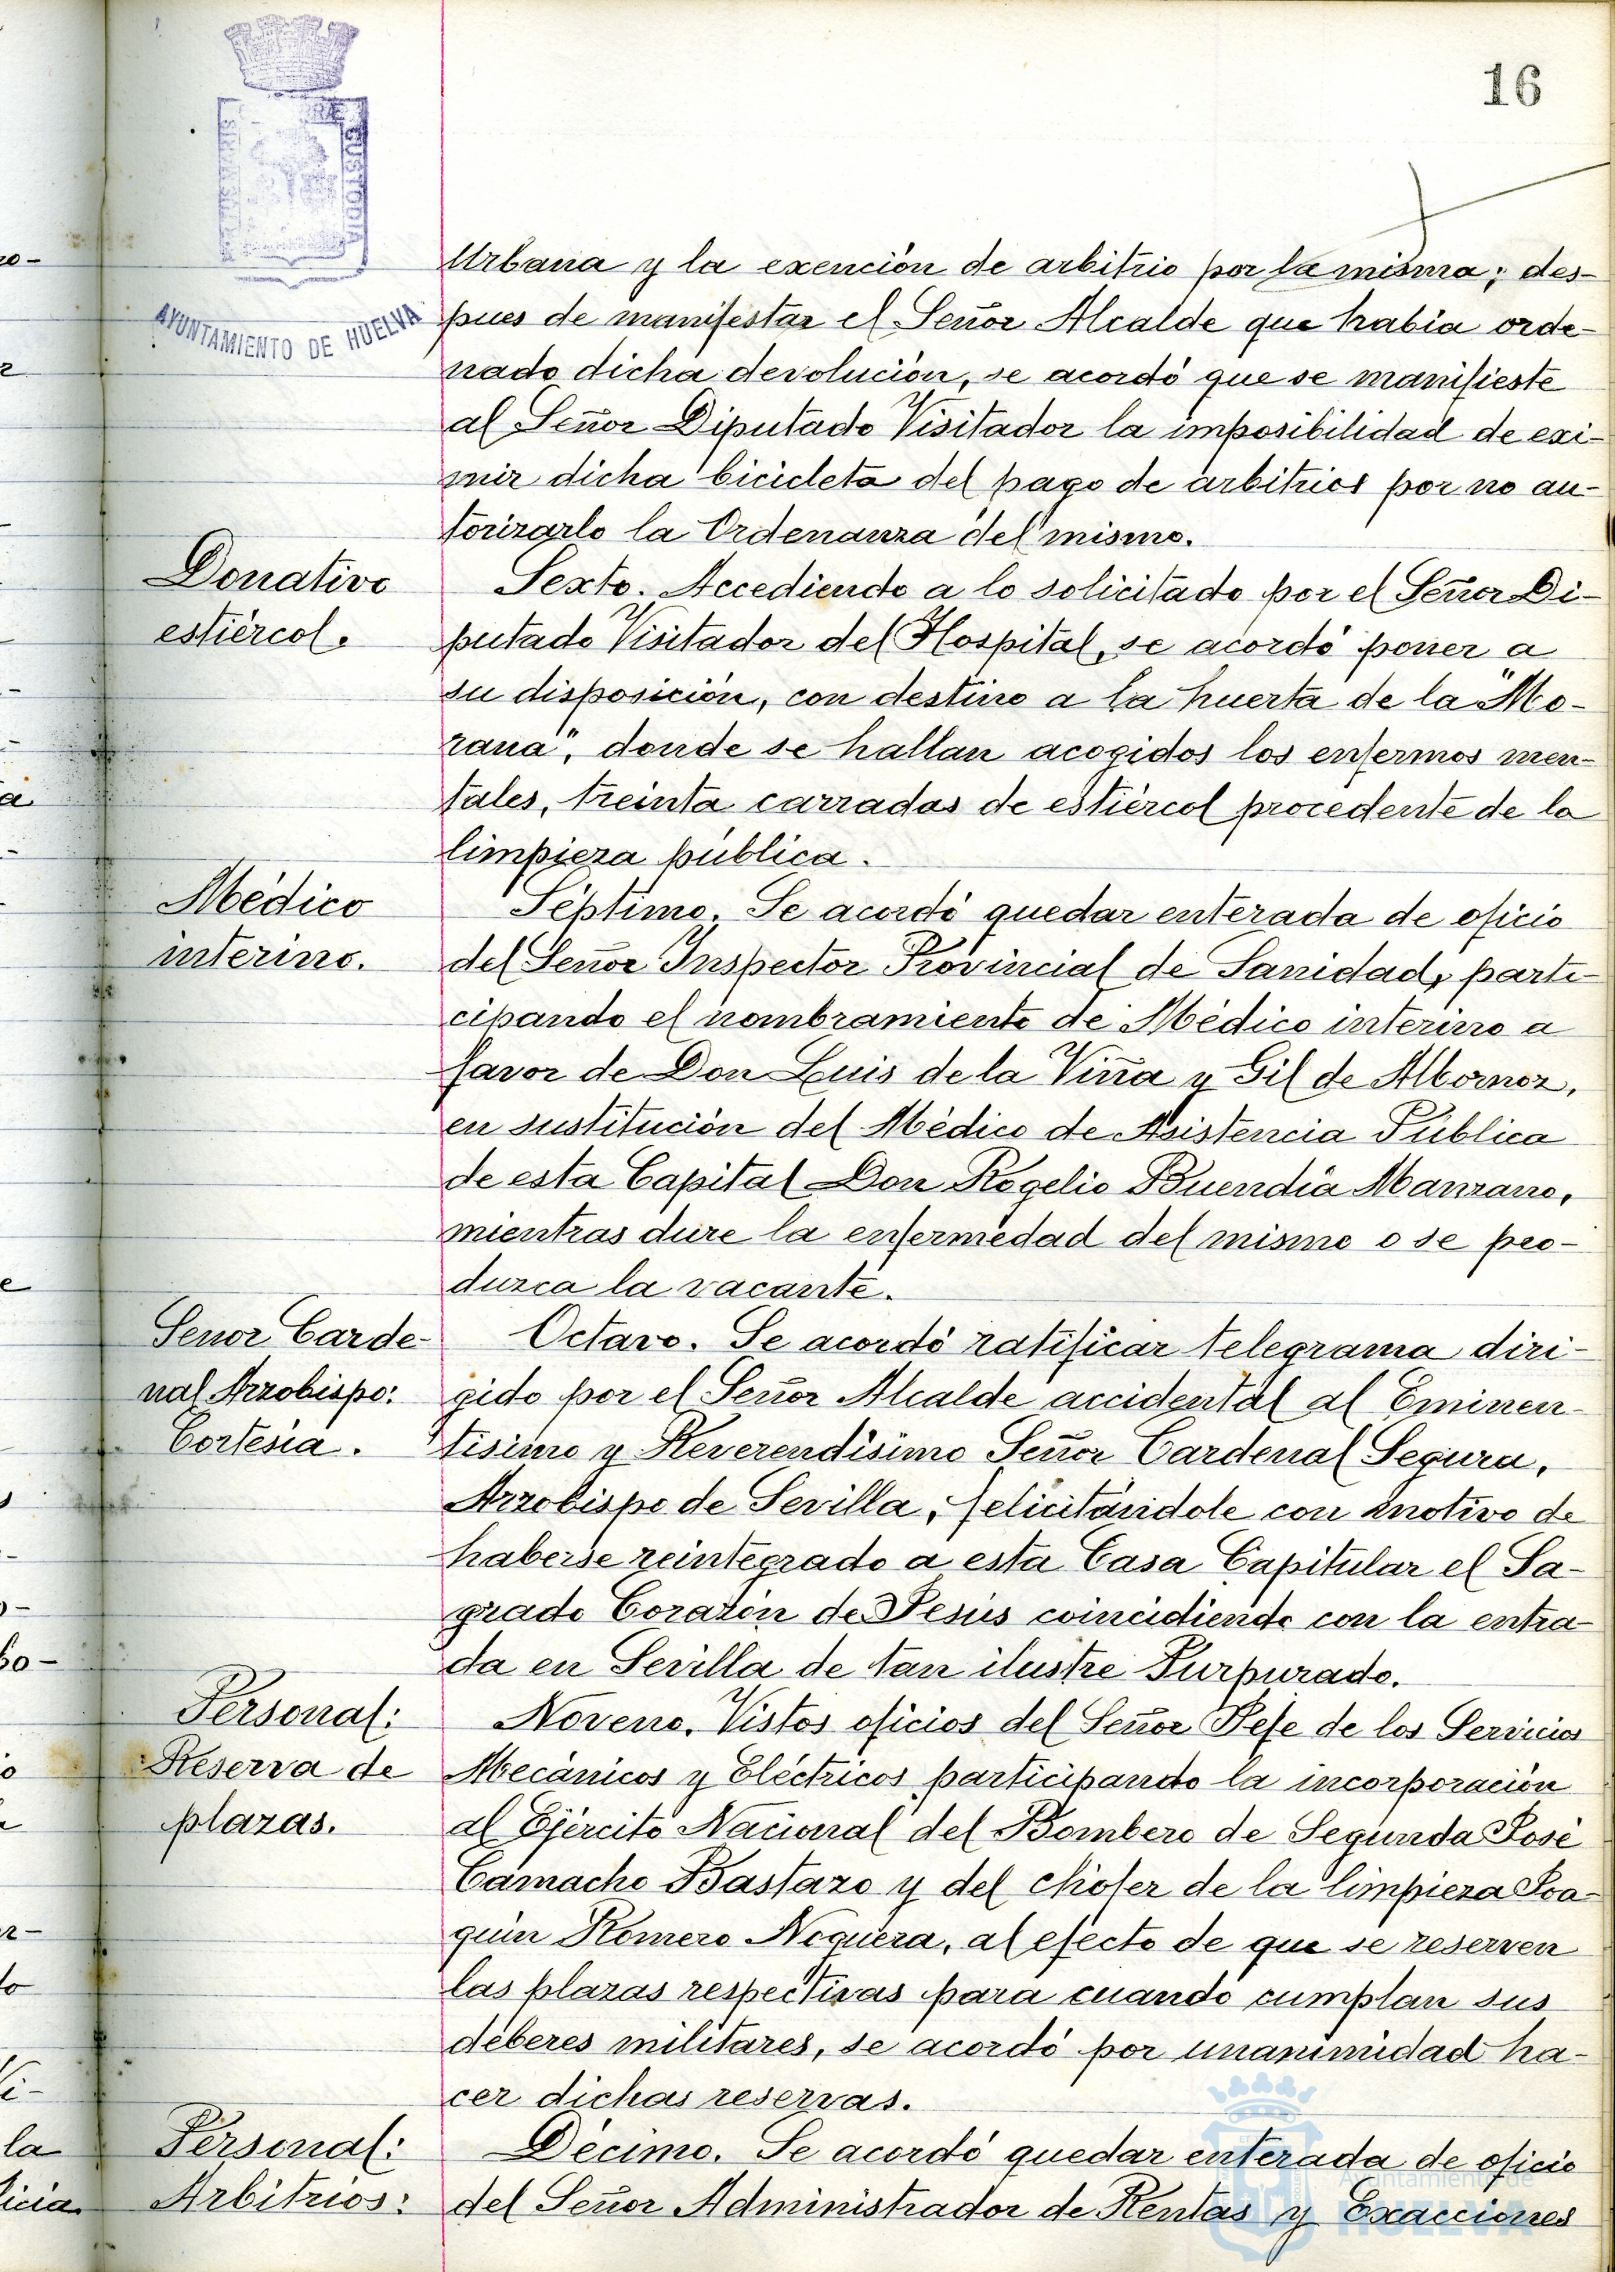 16
AYUNTAMIENTO DE HUELVA
Urbana y la exención de arbitrio por la misma; des-
pues de manifestar el Señor Alcalde que había orde-
nado dicha devolución, se acordó que se manifieste
al Señor Diputado Visitador la imposibilidad de exi-
mir dicha bicicleta del pago de arbitrios por no au-
torizarlo la Ordenanza del mismo.
Donativo
estiércol.
Sexto. Accediendo a lo solicitado por el Señor Di-
putado Visitador del Hospital, se acordó poner a
su disposición, con destino a la huerta de la "Mo-
rana", donde se hallan acogidos los enfermos men-
tales, treinta carradas de estiércol procedente de la
limpieza pública.
Médico
interino.
Séptimo. Se acordó quedar enterada de oficio
del Señor Inspector Provincial de Sanidad, parti-
cipando el nombramiento de Médico interino a
favor de Don Luis de la Viña y Gil de Albornoz,
en sustitución del Médico de Asistencia Pública
de esta Capital Don Rogelio Buendía Manzano,
mientras dure la enfermedad del mismo o se pro-
duzca la vacante.
Senor Carde-
nal Arzobispo:
Cortesía.
Octavo. Se acordó ratificar telegrama diri-
gido por el Señor Alcalde accidental al Eminen-
tisimo y Reverendísimo Señor Cardenal Segura,
Arzobispo de Sevilla, felicitándole con motivo de
haberse reintegrado a esta Casa Capitular el Sa-
grado Corazón de Jesús coincidiendo con la entra-
da en Sevilla de tan ilustre Purpurado.
Personal:
Reserva de
plazas.
Noveno. Vistos oficios del Señor Jefe de los Servicios
Mecánicos y Eléctricos participando la incorporación
al Ejército Nacional del Bombero de Segunda José
Camacho Bastazo y del chófer de la limpieza Joa-
quin Romero Noguera, al efecto de que se reserven
las plazas respectivas para cuando cumplan sus
deberes militares, se acordó por unanimidad ha-
cer dichas reservas.
Personal:
Arbitrios:
Décimo. Se acordó quedar enterada de oficio
del Señor Administrador de Rentas y Exacciones
Ayuntamiento de
HUELVA